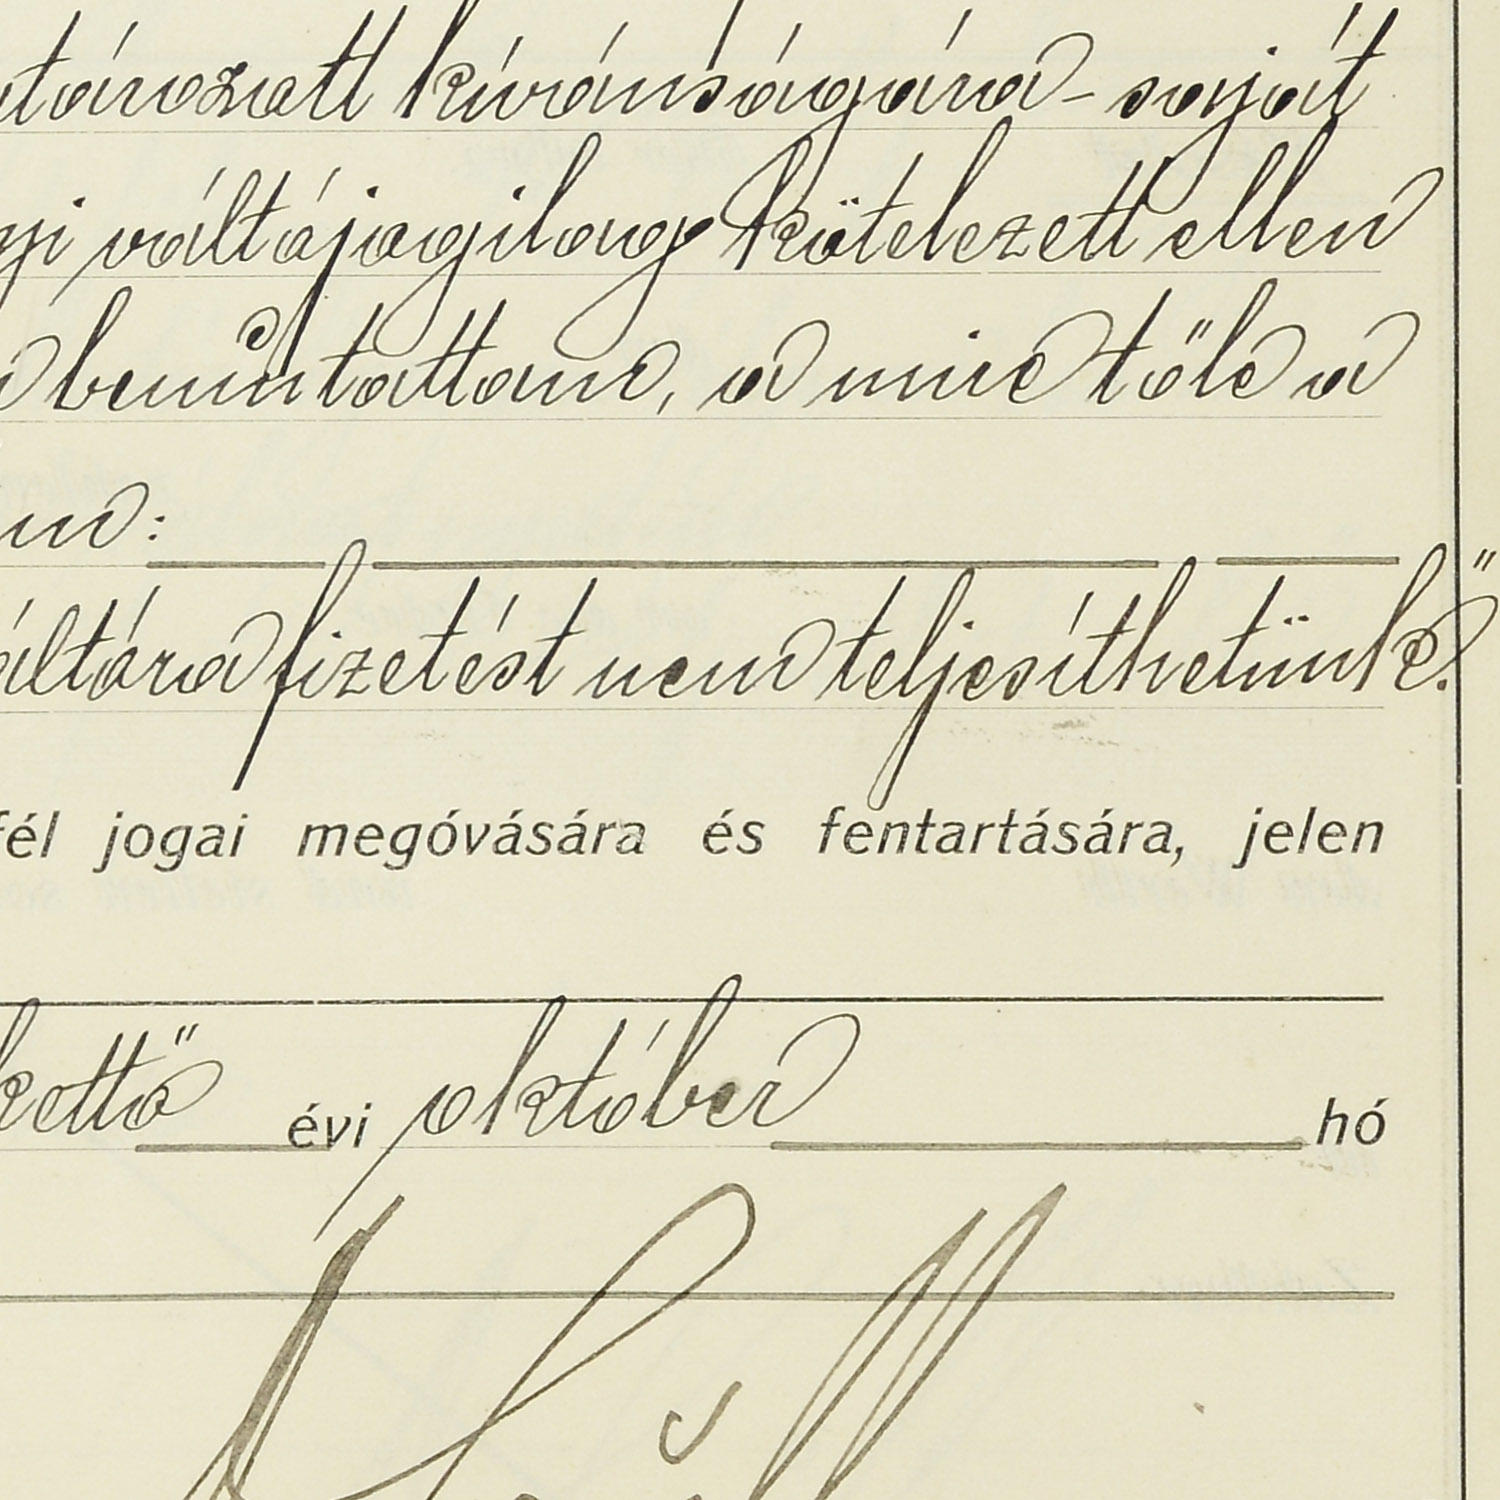 határozatt kivánságára - saját
váltójogilag kötelezett ellen
bemutattam, a mire tőle a
áltóra fizetést nem teljesíthetünk."
fél jogai megóvására és fentartására, jelen
kettő évi október hó